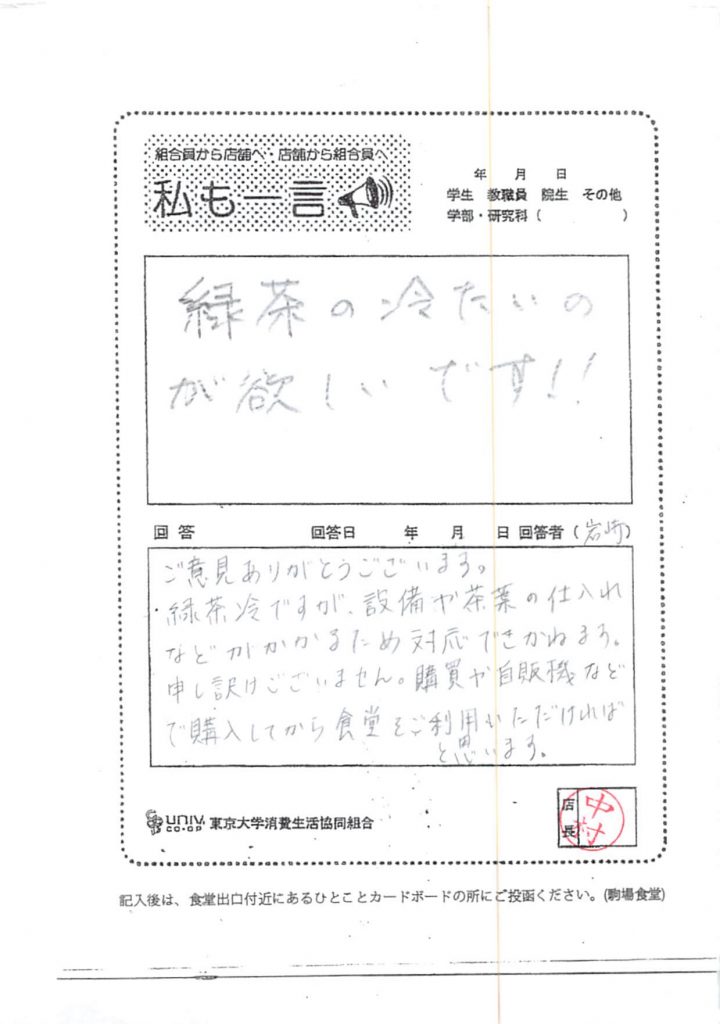 組合員から店舗へ・店舗から組合員へ
私も一言
年 月 日
学生 教職員 院生 その他
学部・研究科( )
緑茶の冷たいの
が欲しいです!!
回答 回答日 年 月 日 回答者(岩崎)
ご意見ありがとうございます。
緑茶冷ですが、設備や茶葉の仕入れ
などがかかるため対応できかねます。
申し訳けございません。購買や自販機など
で購入してから食堂をご利用いただければ
と思います。
UNIV. CO-OP 東京大学消費生活協同組合
店長 中村
記入後は、食堂出口付近にあるひとことカードボードの所にご投函ください。(駒場食堂)